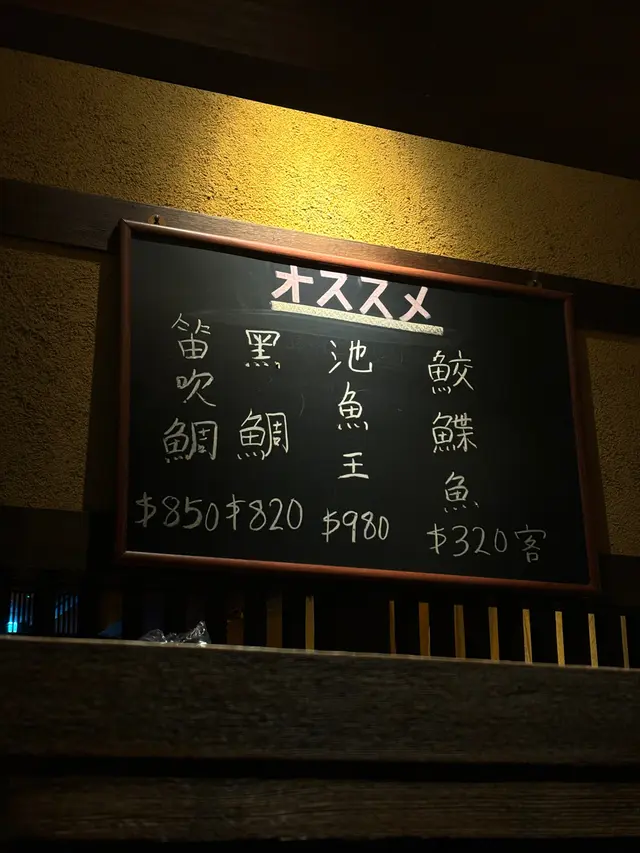 オススメ
鮫鰈魚
$320客
池魚王
$980
黑鯛
$820
笛吹鯛
$850